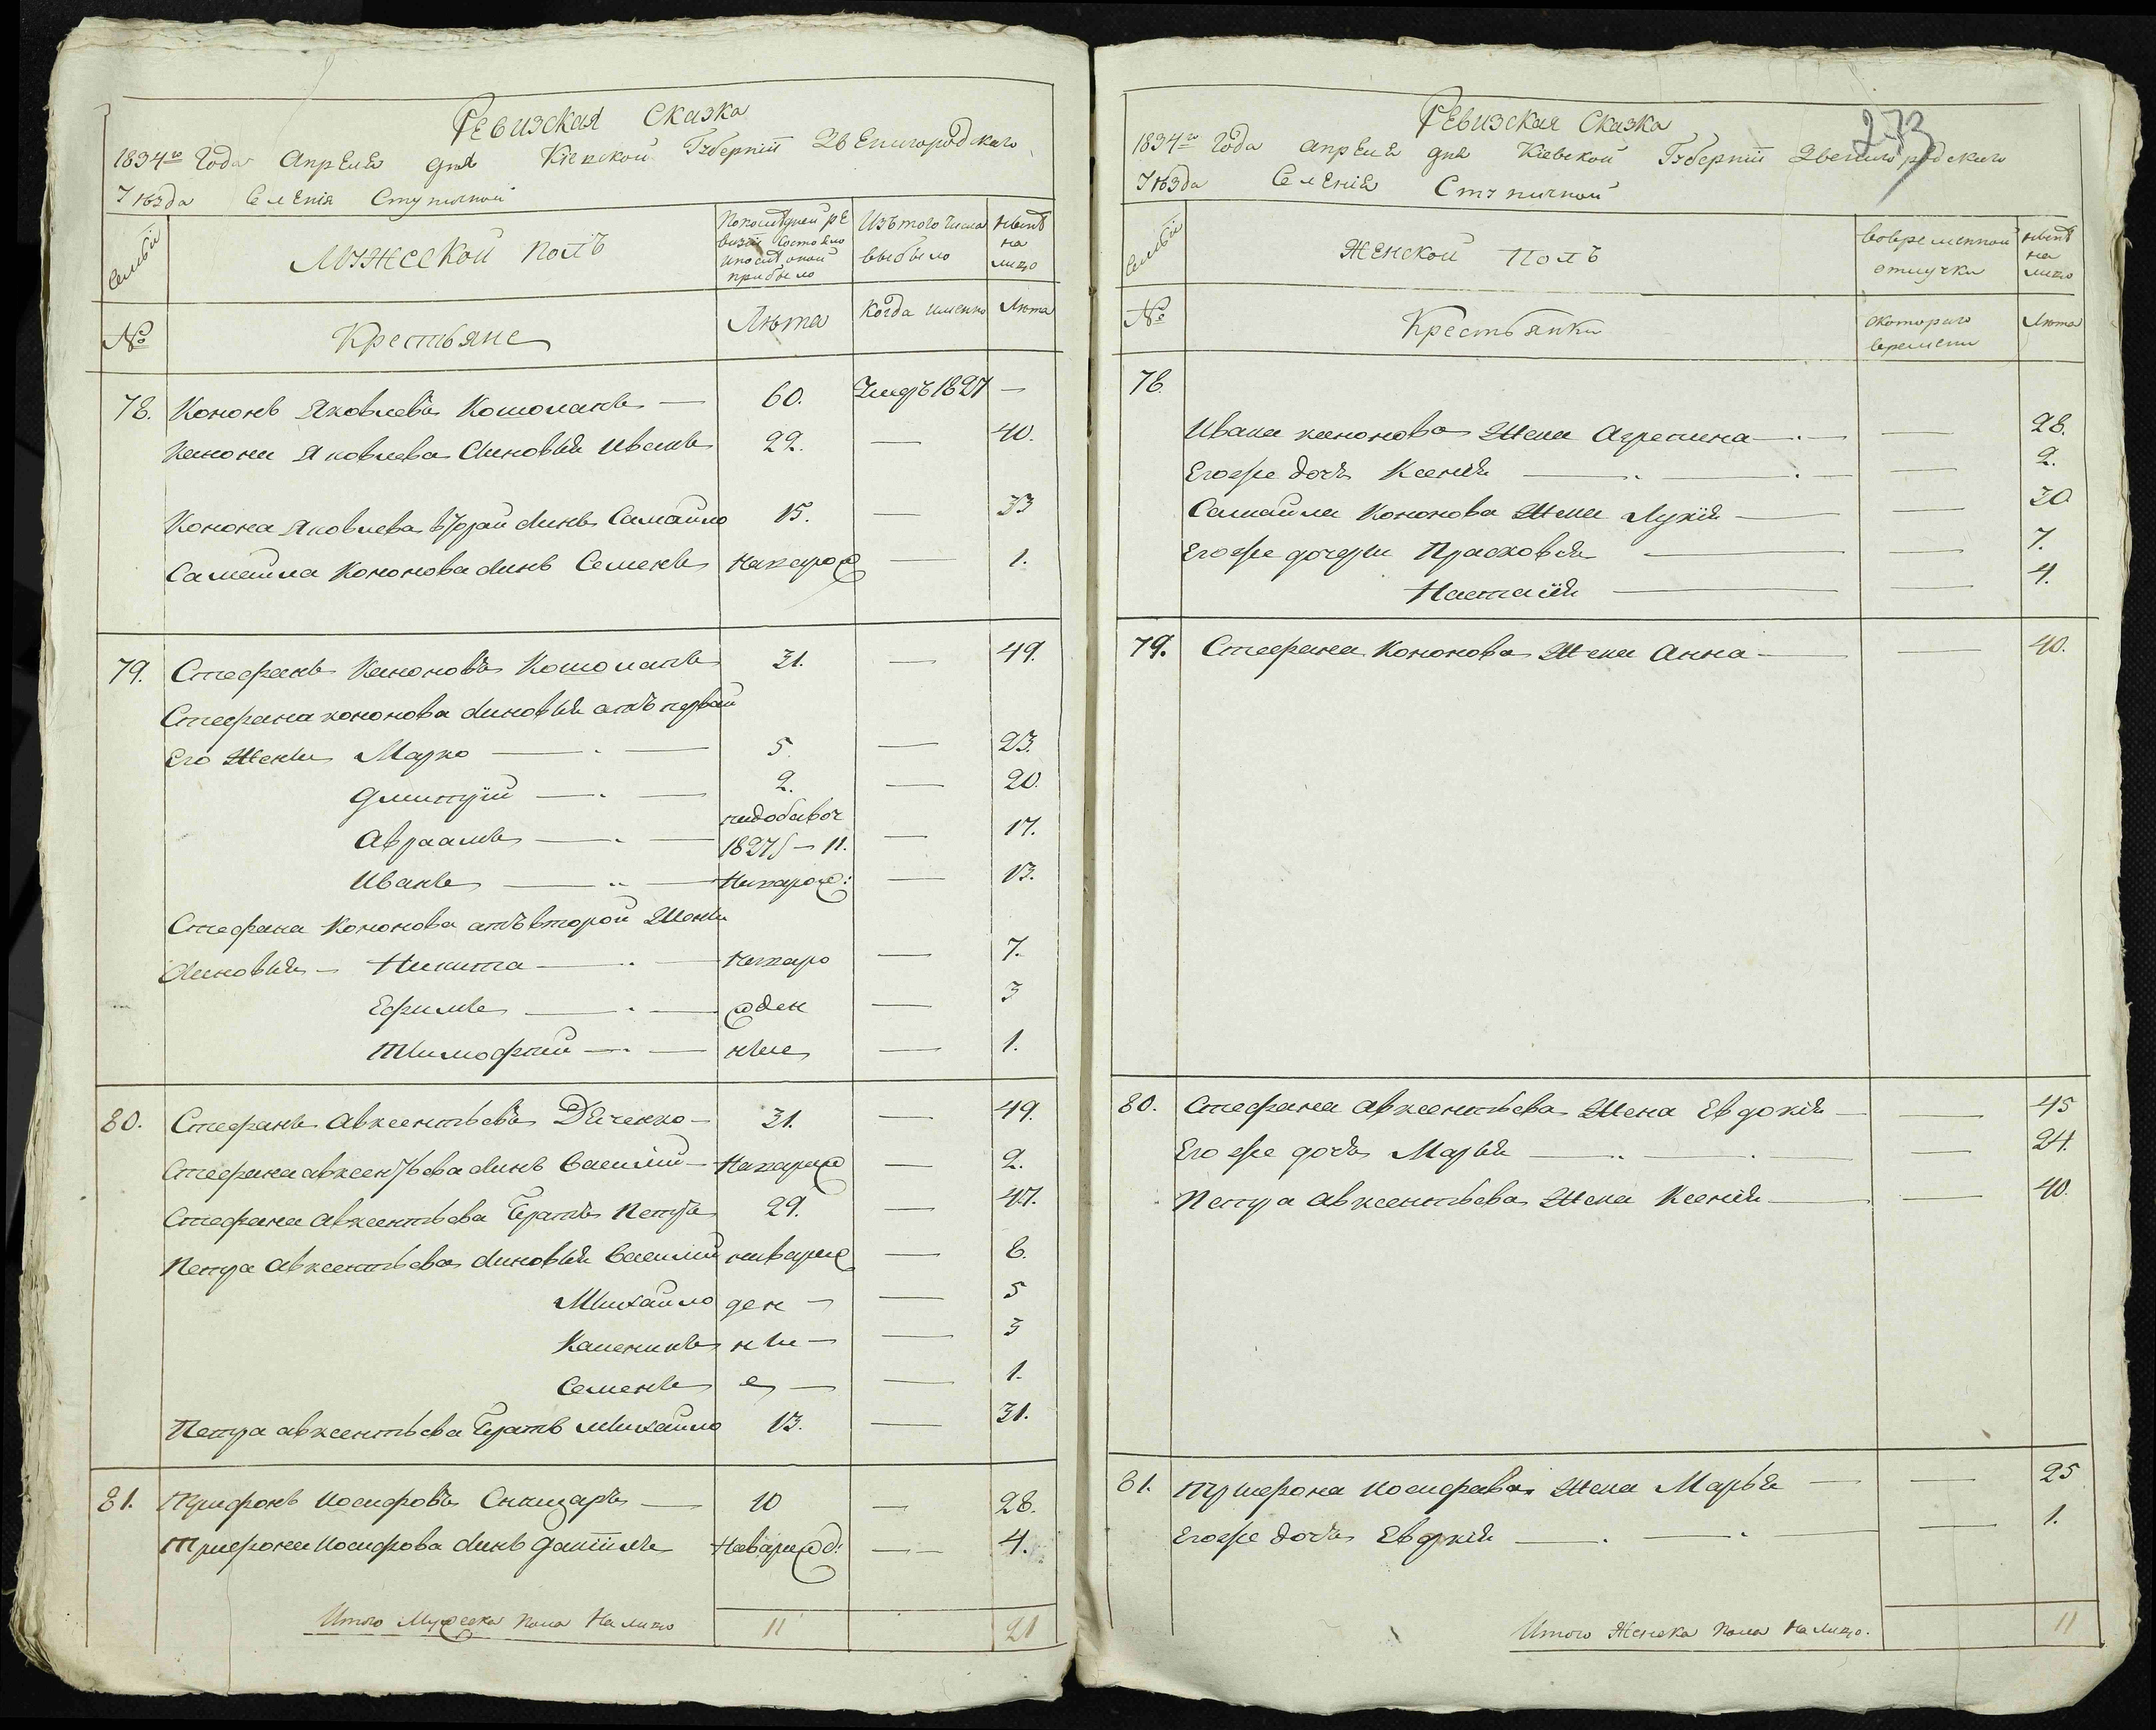 Ревизская Сказка
1834го Года Апреля дня Кіевской Губерніи Звенигородского
Уѣзда Селенія Ступичной
Семьи
Мужеской полъ
По последней ре
визіи состояло
и после оной
прибыло
Изъ того числа
выбыло
Ныне
на
лицо
№
Крестьяне
Лѣта
Когда именно
Лѣта
78. Кононъ Яковлевъ Кошоланъ — 60. Умеръ 1827 —
Конона Яковлева Синовья Иванъ 22. — 40.
Конона Яковлева вторай синъ Самайло 15. — 33
Самайла Кононова синъ Семенъ Нахарож — 1.
79. Стефанъ Кононовъ Кошоланъ 31. — 49.
Стефана кононова синовья отъ первай
Его Жены Марко — 5. — 23.
Дмитрій — 2. — 20.
подобавоч
Авраамъ — 1827 — 11. — 17.
Иванъ — Нахарож: — 13.
Стефана Кононова отъ второй Жены
Синовья — Никита — Нахаро — 7.
Ефимъ — жден — 3
Тимофей — ные — 1.
80. Стефанъ Авксентьевъ Дѣченко — 31. — 49.
Стефана авксентьева синъ Василій — Нахарож — 2.
Стефана Авксентьева Братъ Петръ 29. — 47.
Петра Авксентьева синовья Василій — 8.
Михайло ден — — 5
Каленикъ ны — — 3
Семенъ е — — 1.
Петра авксентьева Братъ Михайло 13. — 31.
81. Трифонъ Иосифовъ — 10 — 28.
Трифона Иосифова синъ Даніилъ — 4.
Итого Мужеска пола На лицо 11 21
273
Ревизская Сказка
1834го Года Апреля дня Кіевской Губерніи Звенигородского
Уѣзда Селенія Ступичной
Семьи
Женской полъ
Вовременной
отлучки
Ныне
на
лицо
№
Крестьянки
скотораго
времени
Лѣта
78.
Ивана кононова Жена Агрепина — — 28.
Егоже дочь Ксенія — — 2.
Самайла Кононова Жена Лукія — — 30
Егоже дочери Прасковія — — 7.
Настасія — — 4.
79. Стефана Кононова Жена Анна — — 40.
80. Стефана Авксентьева Жена Евдокія — — 45
Егоже дочь Марья — — 24.
Петра Авксентьева Жена Ксенія — — 40.
81. Трифона Иосифава Жена Марья — — 25
Егоже дочь Евдокія — — 1.
Итого Женска пола На лицо. 11